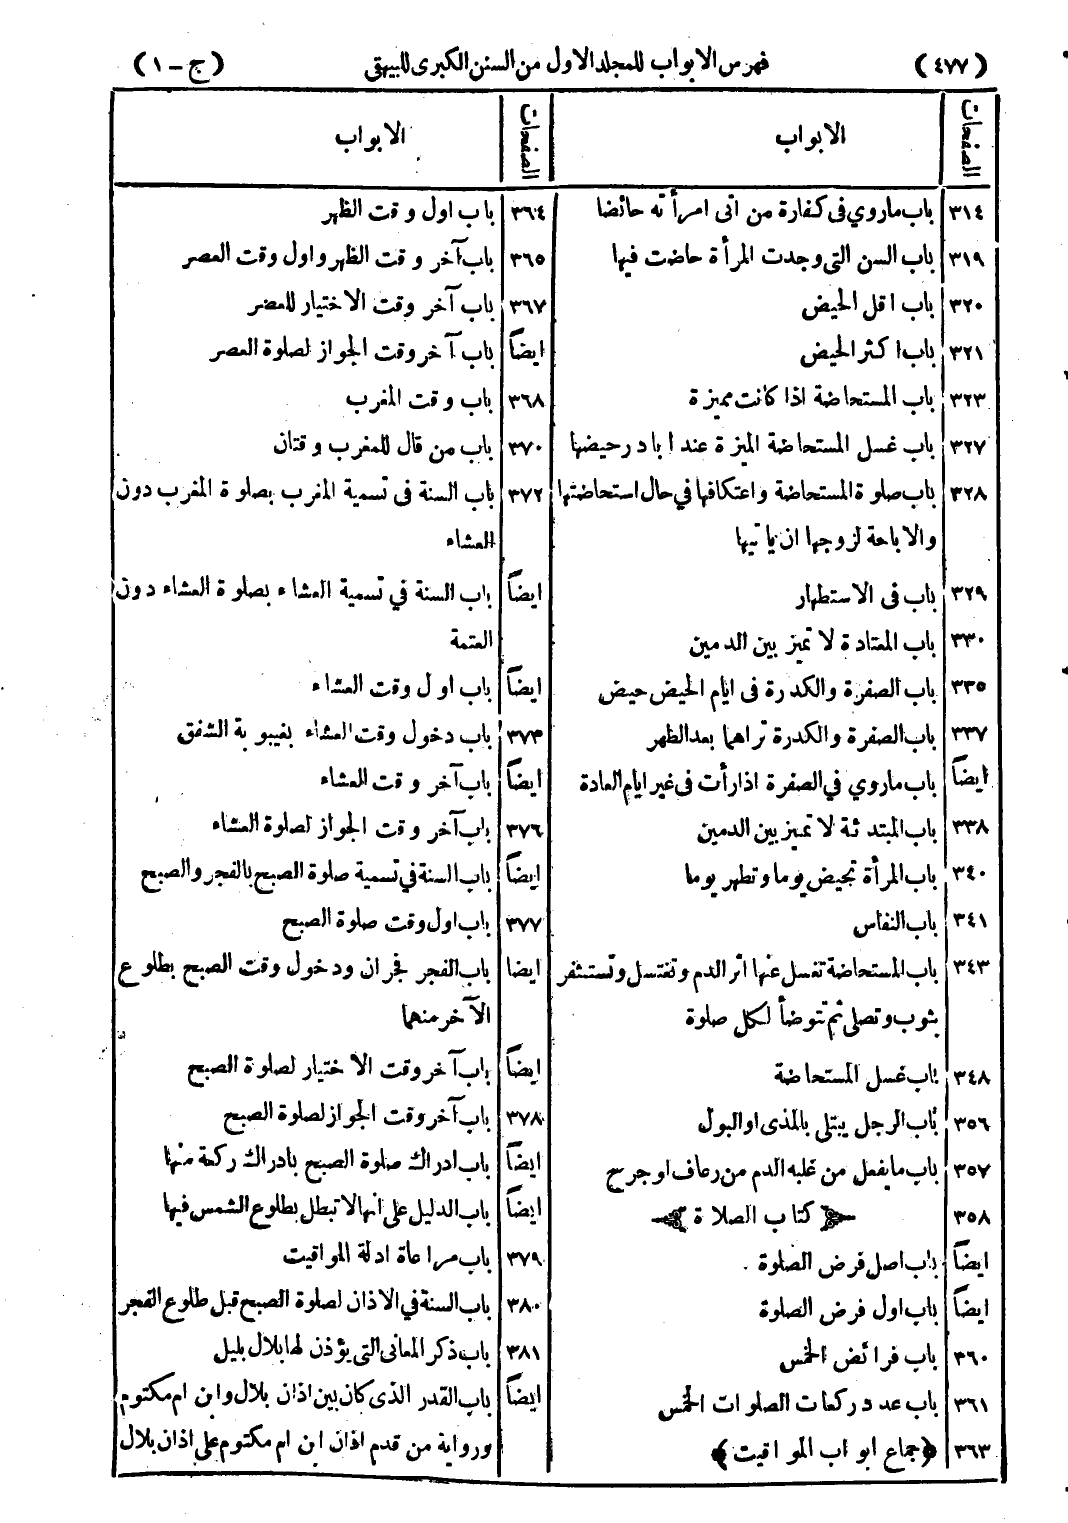 (٤٧٧) فهرس الابواب للمجلد الاول من السنن الكبرى للبيهقى (ج-١)
الصفحات الابواب
٣١٤ باب ماروي فى كفارة من اتى امرأته حائضا
٣١٩ باب السن التى وجدت المرأة حاضت فيها
٣٢٠ باب اقل الحيض
٣٢١ باب اكثر الحيض
٣٢٣ باب المستحاضة اذا كانت مميزة
٣٢٧ باب غسل المستحاضة المميزة عند ادبار حيضها
٣٢٨ باب صلوة المستحاضة واعتكافها في حال استحاضتها
والاباحة لزوجها ان ياتيها
٣٢٩ باب فى الاستطهار
٣٣٠ باب المعتادة لا تميز بين الدمين
٣٣٥ باب الصفرة والكدرة فى ايام الحيض حيض
٣٣٧ باب الصفرة والكدرة تراهما بعد الطهر
ايضاً باب ماروي في الصفرة اذا رأت فى غير ايام العادة
٣٣٨ باب المبتدئة لا تميز بين الدمين
٣٤٠ باب المرأة تحيض يوما وتطهر يوما
٣٤١ باب النفاس
٣٤٣ باب المستحاضة تغسل عنها اثر الدم وتغتسل وتستثفر
بثوب وتصلى ثم تتوضأ لكل صلوة
٣٤٨ باب غسل المستحاضة
٣٥٦ باب الرجل يبتلى بالمذى او البول
٣٥٧ باب ما يفعل من غلبه الدم من رعاف او جرح
٣٥٨ كتاب الصلاة
ايضاً باب اصل فرض الصلوة
ايضاً باب اول فرض الصلوة
٣٦٠ باب فرائض الخمس
٣٦١ باب عدد ركعات الصلوات الخمس
٣٦٣ ﴿جماع ابواب المواقيت﴾
الصفحات الابواب
٣٦٤ باب اول وقت الظهر
٣٦٥ باب آخر وقت الظهر واول وقت العصر
٣٦٧ باب آخر وقت الاختيار للعصر
ايضاً باب آخر وقت الجواز لصلوة العصر
٣٦٨ باب وقت المغرب
٣٧٠ باب من قال للمغرب وقتان
٣٧٢ باب السنة فى تسمية المغرب بصلوة المغرب دون
العشاء
ايضاً باب السنة في تسمية العشاء بصلوة العشاء دون
العتمة
ايضاً باب اول وقت العشاء
٣٧٣ باب دخول وقت العشاء بغيبوبة الشفق
ايضاً باب آخر وقت العشاء
٣٧٦ باب آخر وقت الجواز لصلوة العشاء
ايضاً باب السنة في تسمية صلوة الصبح بالفجر والصبح
٣٧٧ باب اول وقت صلوة الصبح
ايضا باب الفجر فجران ودخول وقت الصبح بطلوع
الآخر منهما
ايضاً باب آخر وقت الاختيار لصلوة الصبح
٣٧٨ باب آخر وقت الجواز لصلوة الصبح
ايضاً باب ادراك صلوة الصبح بادراك ركعة منها
ايضاً باب الدليل على انها لا تبطل بطلوع الشمس فيها
٣٧٩ باب مراعاة ادلة المواقيت
٣٨٠ باب السنة في الاذان لصلوة الصبح قبل طلوع الفجر
٣٨١ باب ذكر المعانى التى يؤذن لها بلال بليل
ايضاً باب القدر الذى كان بين اذان بلال وابن ام مكتوم
ورواية من قدم اذان ابن ام مكتوم على اذان بلال